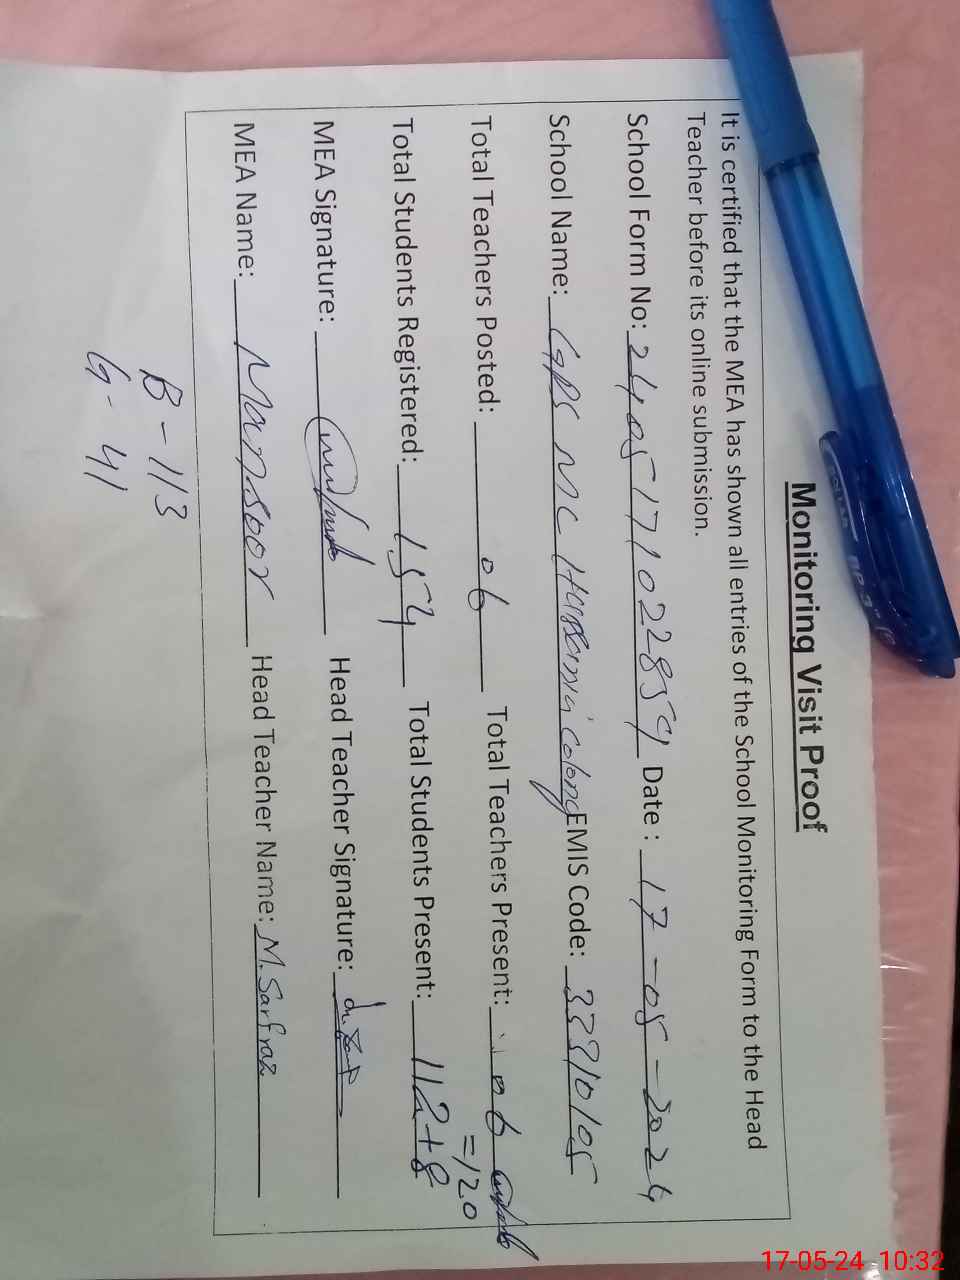 Monitoring Visit Proof
It is certified that the MEA has shown all entries of the School Monitoring Form to the Head
Teacher before its online submission.
School Form No: 240517102285 Date : 17-05-2024
School Name: GPS MC Colony EMIS Code: 33310105
Total Teachers Posted: 06 Total Teachers Present: 06
Total Students Registered: 154 Total Students Present: 112+8
=120
MEA Signature: Head Teacher Signature:
MEA Name: Mansoor Head Teacher Name: M. Sarfraz
B - 113
G - 41
DOLLAR
17-05-24 10:32